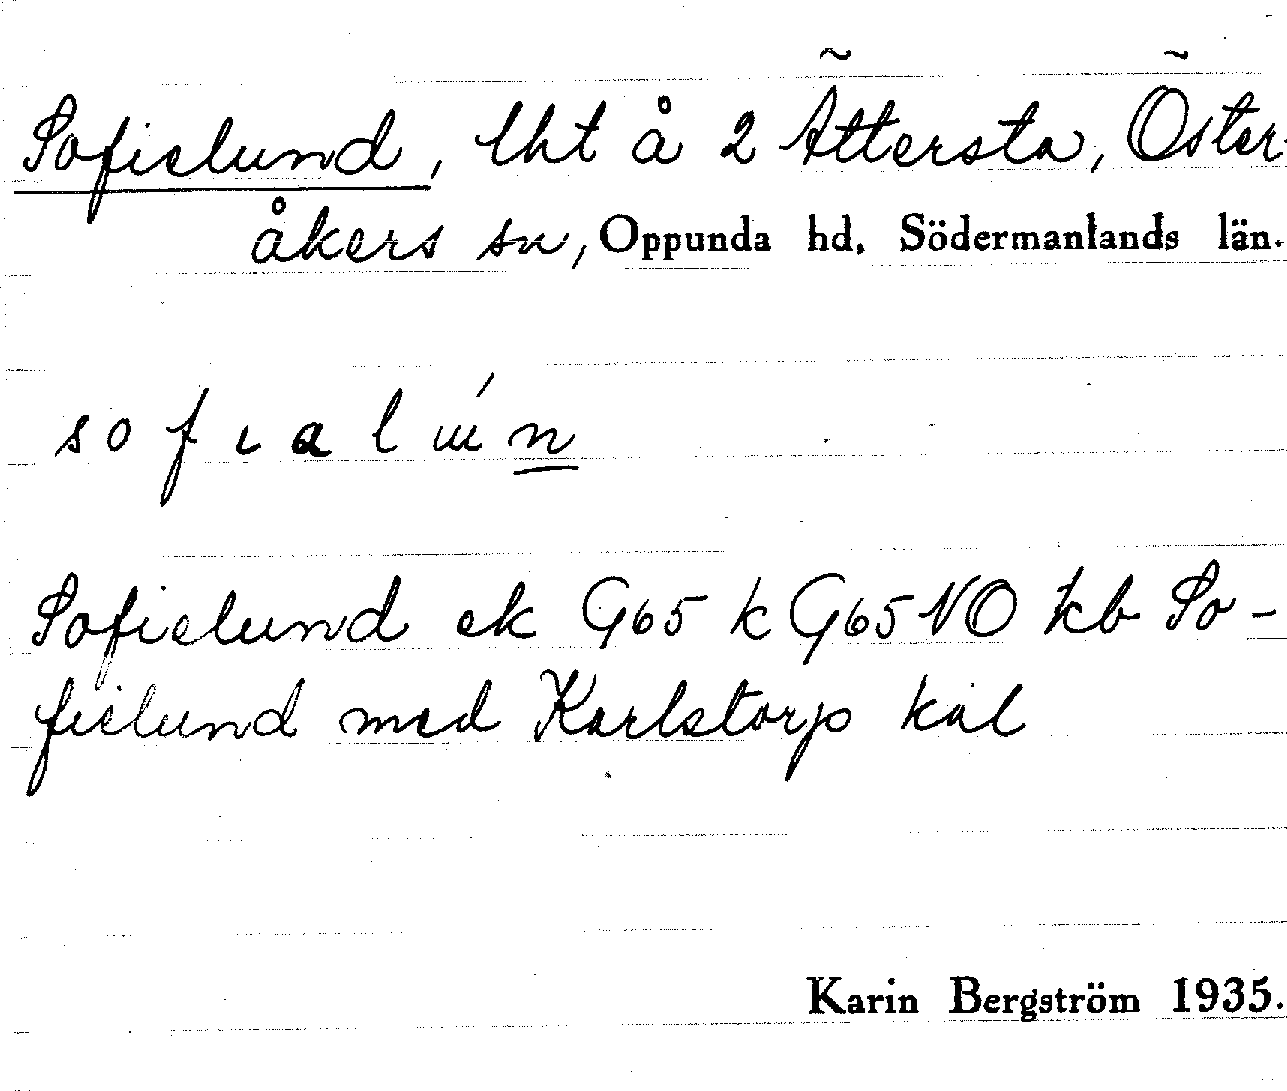 Sofielund, lht å 2 Ättersta, Öster-
åkers sn, Oppunda hd, Södermanlands län.
sofıalɯ́n
Sofielund ek G65 k G65 NO kb So-
fielund med Karlstorp kal
Karin Bergström 1935.